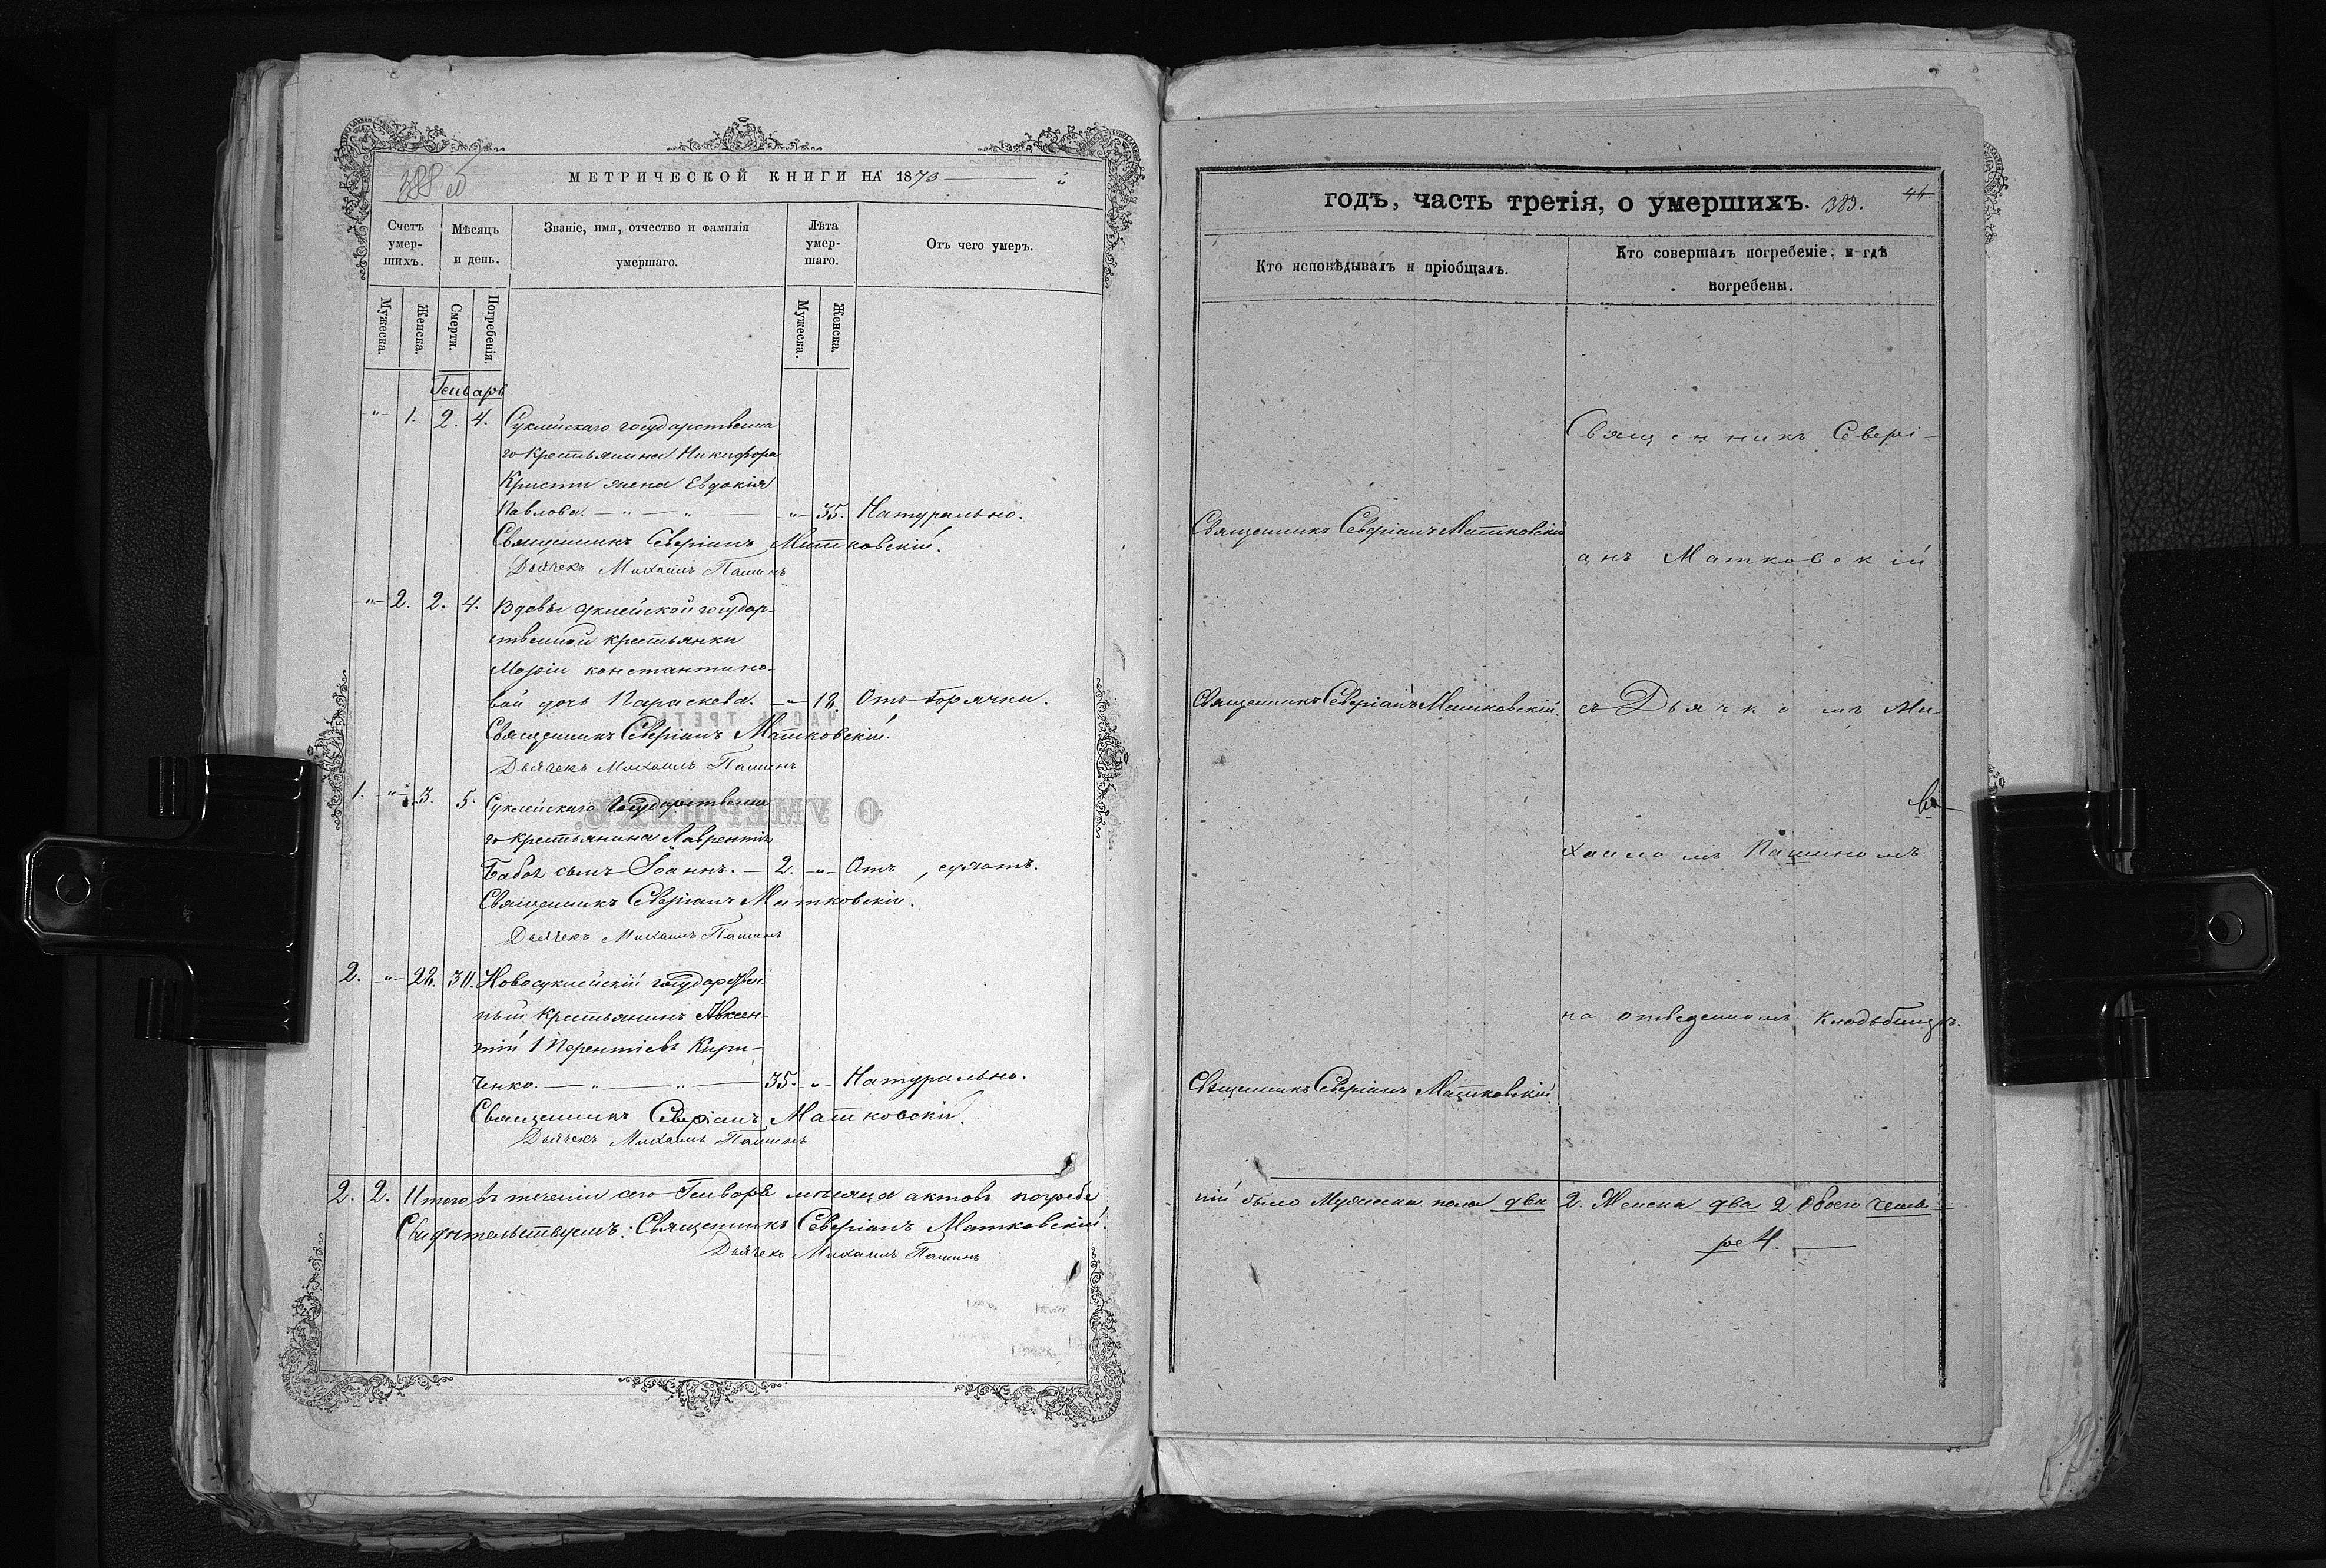 МЕТРИЧЕСКОЙ КНИГИ НА 1873 й
Счетъ умер-шихъ.
Мѣсяцъ и день.
Званіе, имя, отчество и фамилія умершаго.
Лѣта умер-шаго.
Отъ чего умеръ.
Мужеска.
Женска.
Смерти.
Погребенія.
Мужеска.
Женска.
Генварь
-"- 1. 2. 4. Суклейскаго государственна
го крестьянина Никифора
Кристи жена Евдокія
Павлова. — " — " — -"- 35. Натурально.
Священникъ Северіанъ Матковскій.
Дьячекъ Михаилъ Пашинъ
-"- 2. 2. 4. Вдовы суклейской государ-
ственной крестьянки
Маріи Константино-
вой дочь Параскева. -"- 18. Отъ горячки.
Священникъ Северіанъ Матковскій.
Дьячекъ Михаилъ Пашинъ
1. -"- 3. 5. Суклейскаго государственна
го крестьянина Лаврентія
сынъ Іоаннъ. — 2. -"- Отъ
Священникъ Северіанъ Матковскій.
Дьячекъ Михаилъ Пашинъ
2. -"- 28. 30. Новосуклейскій государствен-
ный крестьянинъ Авксен-
тій Кири-
ченко. — " — " — 35. -"- Натурально.
Священникъ Северіанъ Матковскій.
Дьячекъ Михаилъ Пашинъ
2. 2. Итого въ теченіи сего Генваря мѣсяца актовъ погребе
Свидѣтельствуемъ: Священникъ Северіанъ Матковскій.
Дьячекъ Михаилъ Пашинъ
годъ, часть третія, о умершихъ. 389.
Кто исповѣдывалъ и пріобщалъ.
Кто совершалъ погребеніе, и гдѣ погребены.
Священникъ Севері-
Священникъ Северіанъ Матковскій
анъ Матковскій
Священникъ Северіанъ Матковскій.
съ Дьячкомъ Ми-
хаиломъ Пашиномъ
на отведенномъ кладбищѣ.
Священникъ Северіанъ Матковскій.
ній было Мужеска пола два 2. Женска два 2. Обоего четы-
ре 4.